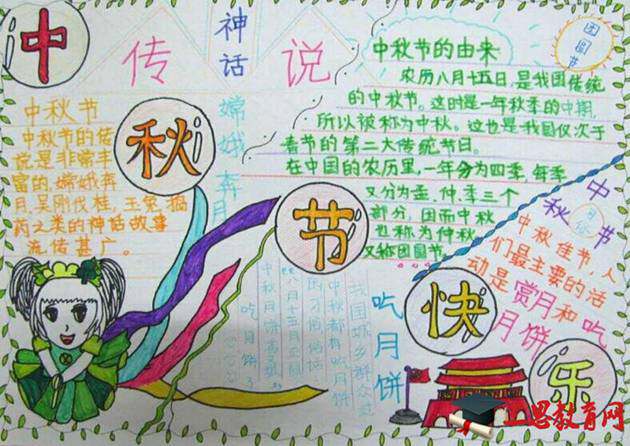 中
秋
节
快
乐
传
神话
说
嫦娥奔月
团圆节
中秋节的由来
农历八月十五日，是我国传统
的中秋节。这时是一年秋季的中期，
所以被称为中秋。这也是我国仅次于
春节的第二大传统节日。
在中国的农历里，一年分为四季，每季
又分为孟、仲、季三个
部分，因而中秋
也称为仲秋
又称团圆节。
中秋节
中秋节的传
说是非常丰
富的，嫦娥奔
月，吴刚伐桂，玉兔捣
药之类的神话故事
流传甚广。
中秋节
中秋佳节，人
们最主要的活
动是赏月和吃
月饼
吃月饼
我国城乡群众过
中秋都有吃月饼
八月十五月正圆
中秋月饼香又甜
吃月饼
上思教育网